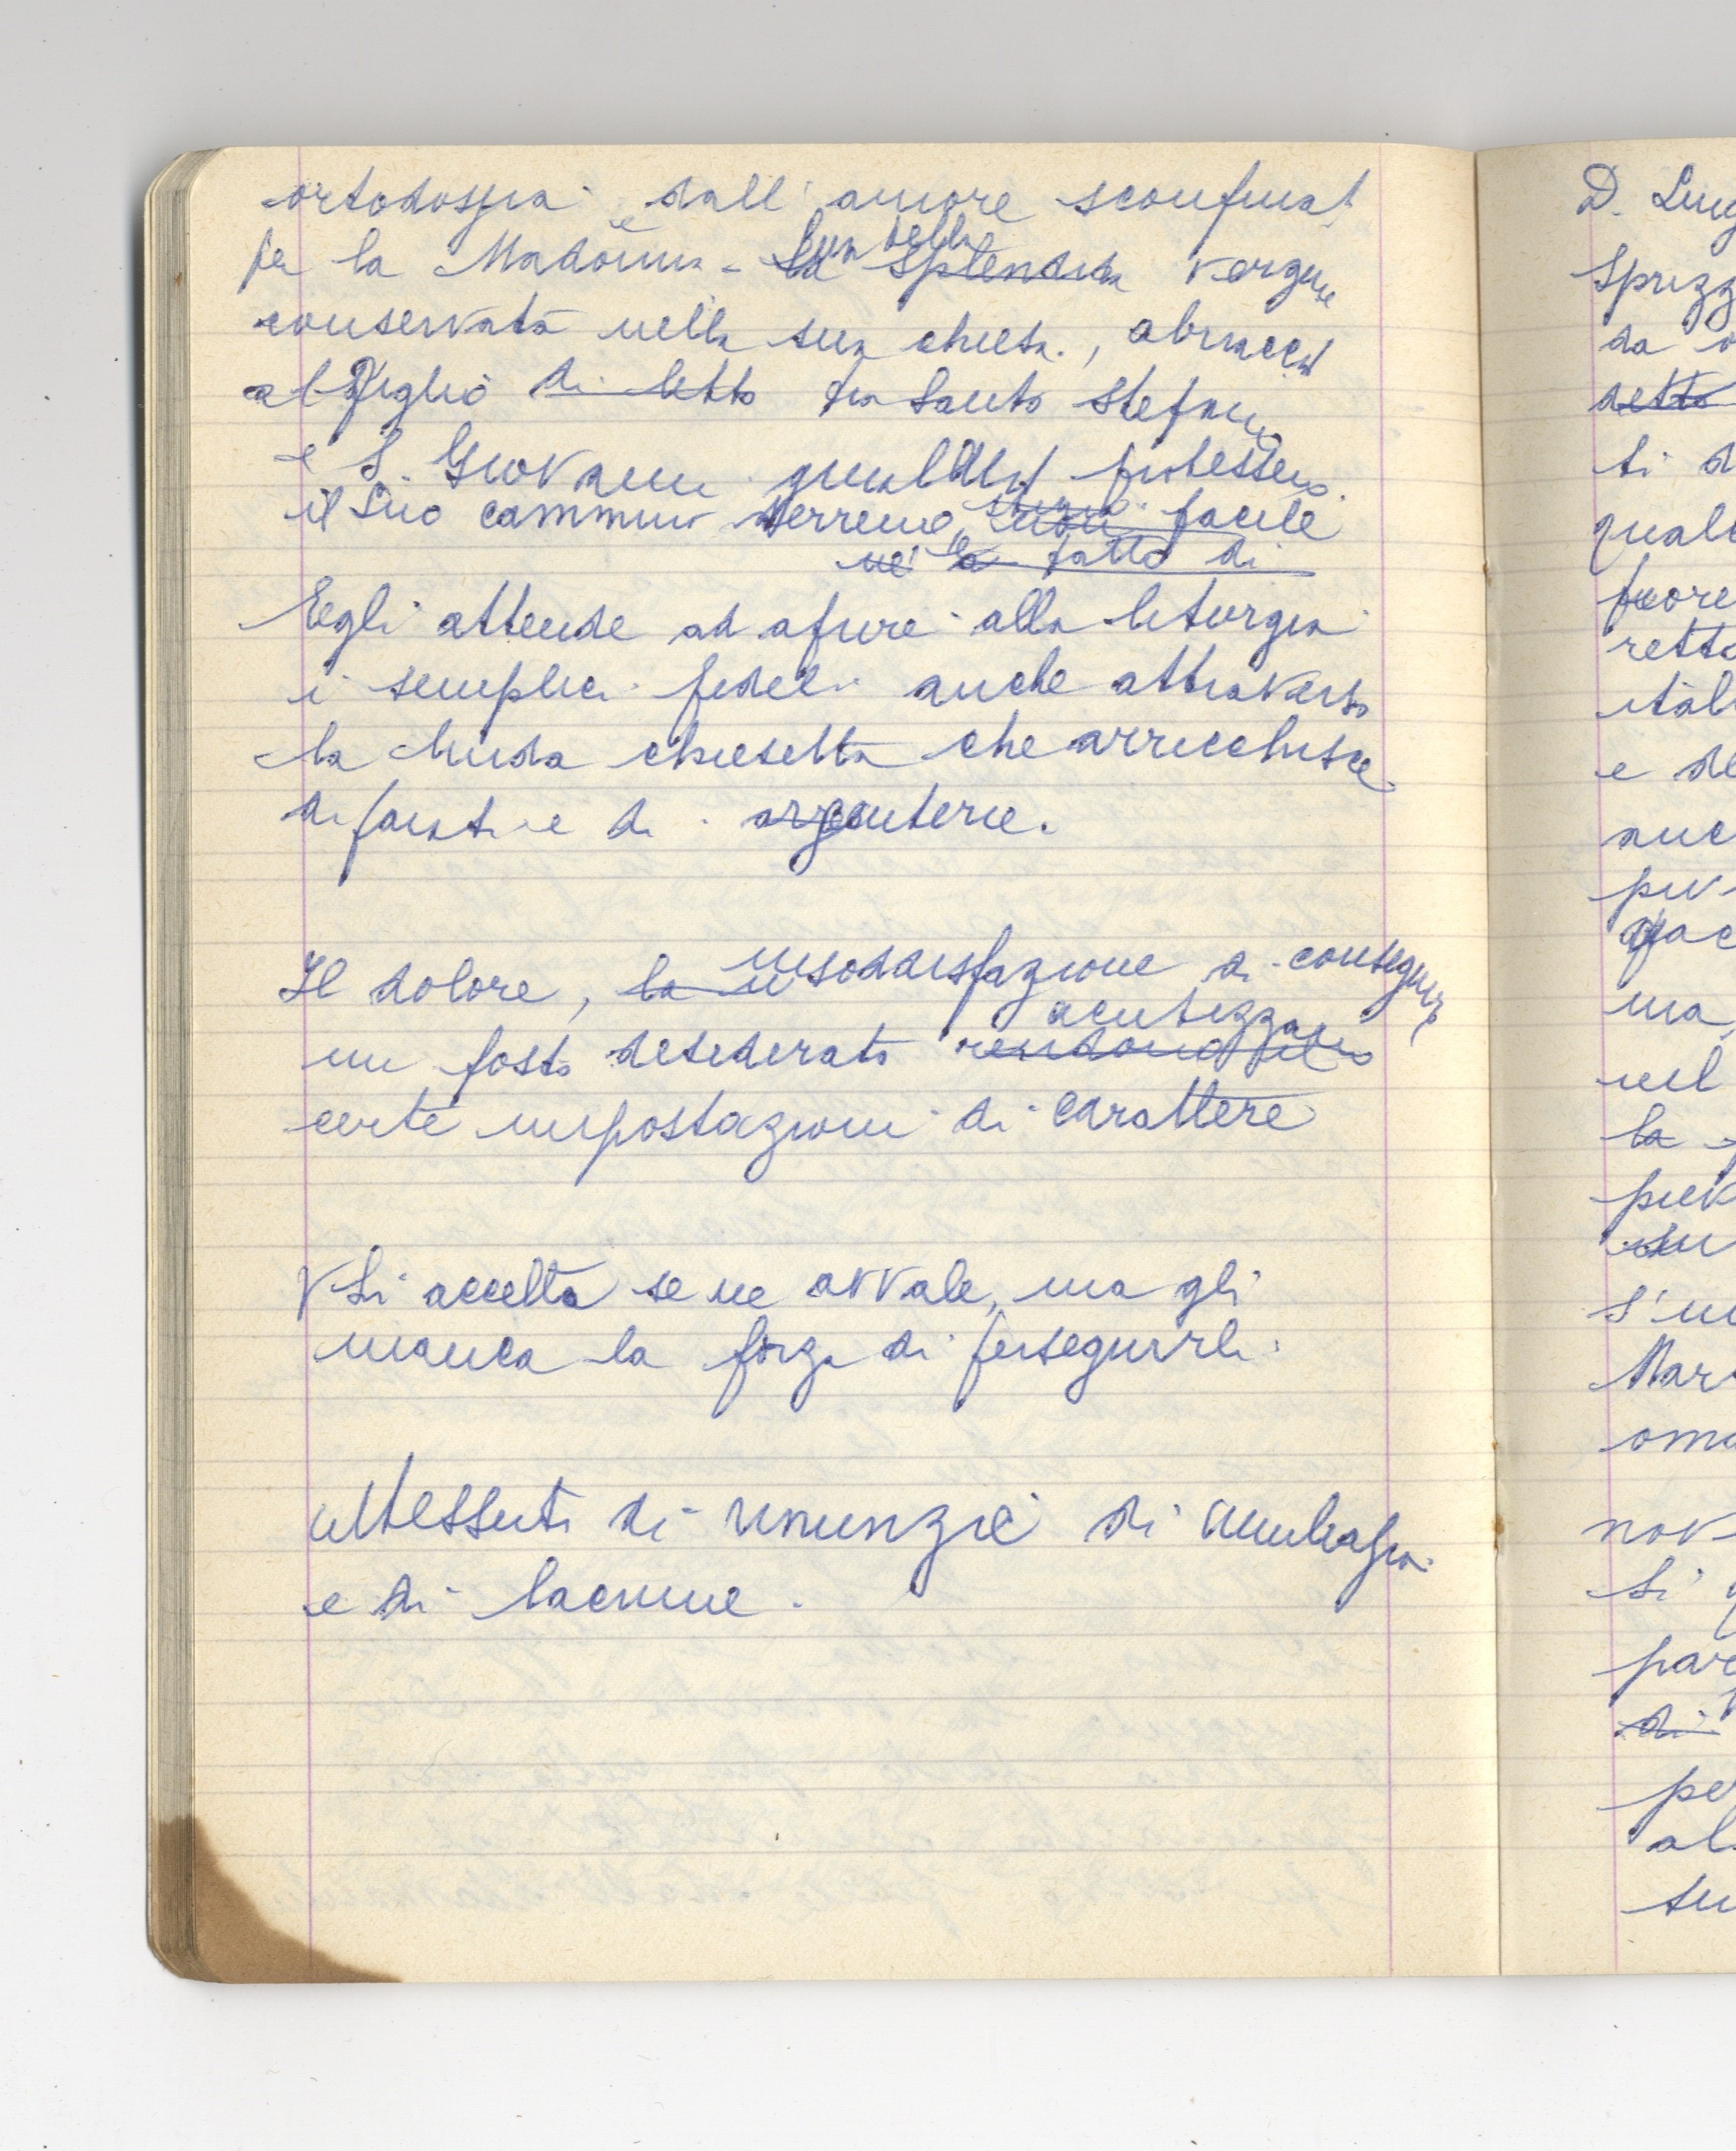 ortodossia e dall'amore sconfinat
per la Madonna - la sua bella splendida Vergine
conservata nella sua chiesa, abbracciat
al Figlio di letto tra Santo Stefano
e S. Giovanni protessero
il Suo cammino terreno, non facile
nè fatto di
Egli attende ad aprire alla liturgia
i semplici fedeli anche attraverso
la linda chiesetta che arricchisce
di parati e di argenterie.
Il dolore, la insoddisfazione di conseguir
un posto desiderato acutizzano
certe impostazioni di carattere
Vsi accetta se ne avvale, ma gli
manca la forza di perseguirli.
intessuti di rinunzie di
e di lacrime.
D. Luig
sprizz
da
detto
ti d
qual
fuore
retto
ital
e de
anc
piv
ma
nel
la
s'in
Mar
oma
nov
si
par
di
per
al
su